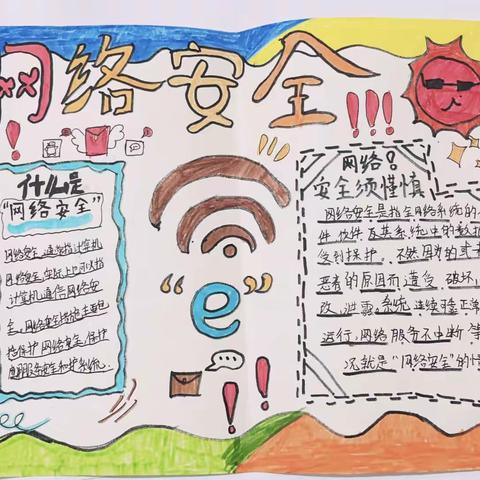 网络安全
什么是
“网络安全”
网络安全,通常指计算机
网络安全,实际上也可以指
计算机通信网络安
全,网络安全
保护网络安全,保护
“e”
网络?
安全须懂慎
网络安全是指全网络系统的
件,软件,及其系统中的数据
受到保护,不然因为的或者
恶意的原因而遭受,破坏,
改,泄露,系统,连续稳正常
运行,网络服务不中断等
况就是“网络安全”的情